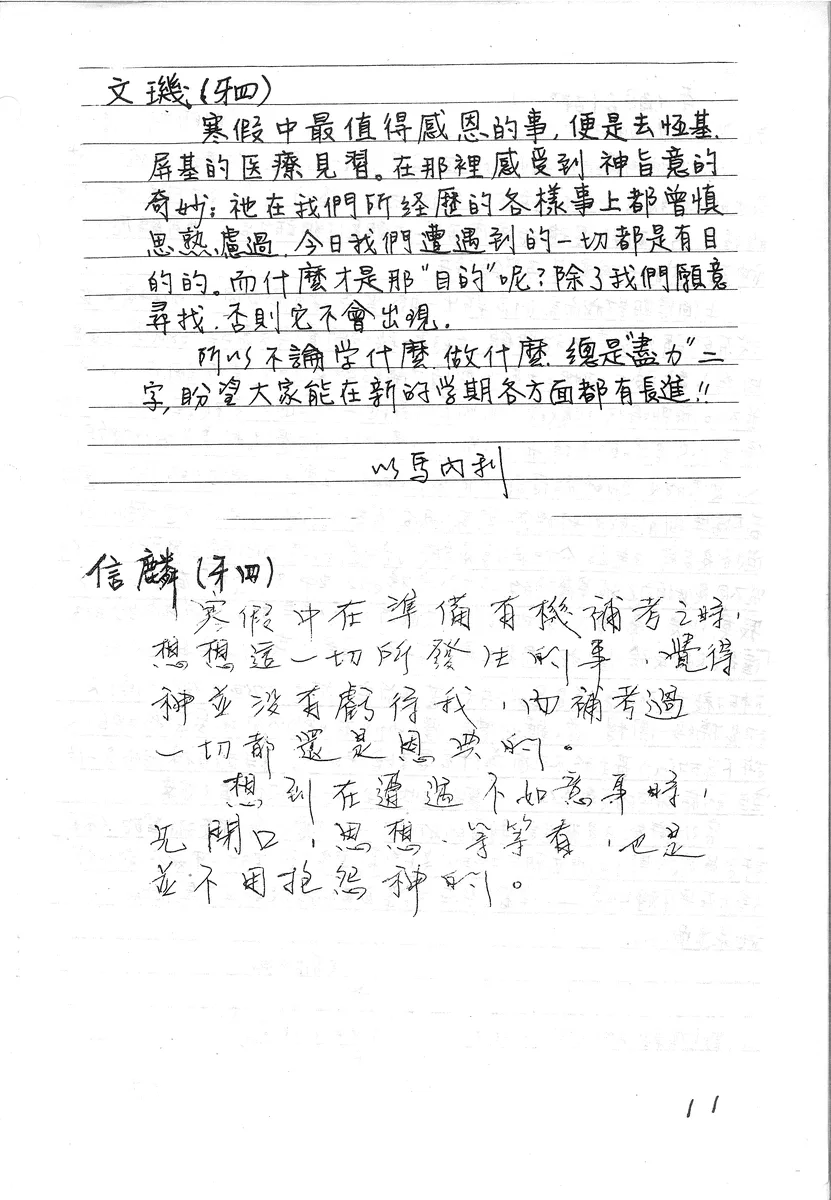 文璣(牙四)
寒假中最值得感恩的事,便是去恆基.
屏基的医療見習。在那裡感受到神旨意的
奇妙;祂在我們所経歷的各樣事上都曾慎
思熟慮過.今日我們遭遇到的一切都是有目
的的。而什麼才是那"目的"呢?除了我們願意
尋找.否則它不會出現.
所以不論学什麼.做什麼.總是"盡力"二
字,盼望大家能在新的学期各方面都有長進!!
以馬內利
信麟(牙四)
寒假中在準備有機補考之時,
想想這一切所發生的事,覺得
神並沒有虧待我,而補考過
一切都還是恩典的。
想到在遭遇不如意事時,
先閉口,思想.等等看,也是
並不用抱怨神的。
11